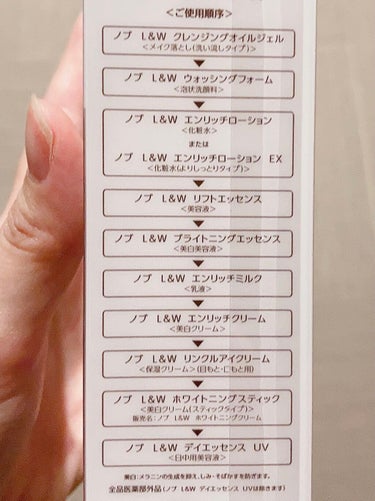 <ご使用順序>
ノブ L&W クレンジングオイルジェル
<メイク落とし(洗い流しタイプ)>
ノブ L&W ウォッシングフォーム
<泡状洗顔料>
ノブ L&W エンリッチローション
<化粧水>
または
ノブ L&W エンリッチローション EX
<化粧水(よりしっとりタイプ)>
ノブ L&W リフトエッセンス
<美容液>
ノブ L&W ブライトニングエッセンス
<美白美容液>
ノブ L&W エンリッチミルク
<乳液>
ノブ L&W エンリッチクリーム
<美白クリーム>
ノブ L&W リンクルアイクリーム
<保湿クリーム>(目もと・口もと用)
ノブ L&W ホワイトニングスティック
<美白クリーム(スティックタイプ)>
販売名:ノブ L&W ホワイトニングクリーム
ノブ L&W デイエッセンス UV
<日中用美容液>
美白:メラニンの生成を抑え、しみ・そばかすを防ぎます。
全品医薬部外品(ノブ L&W デイエッセンス UVは除きます)